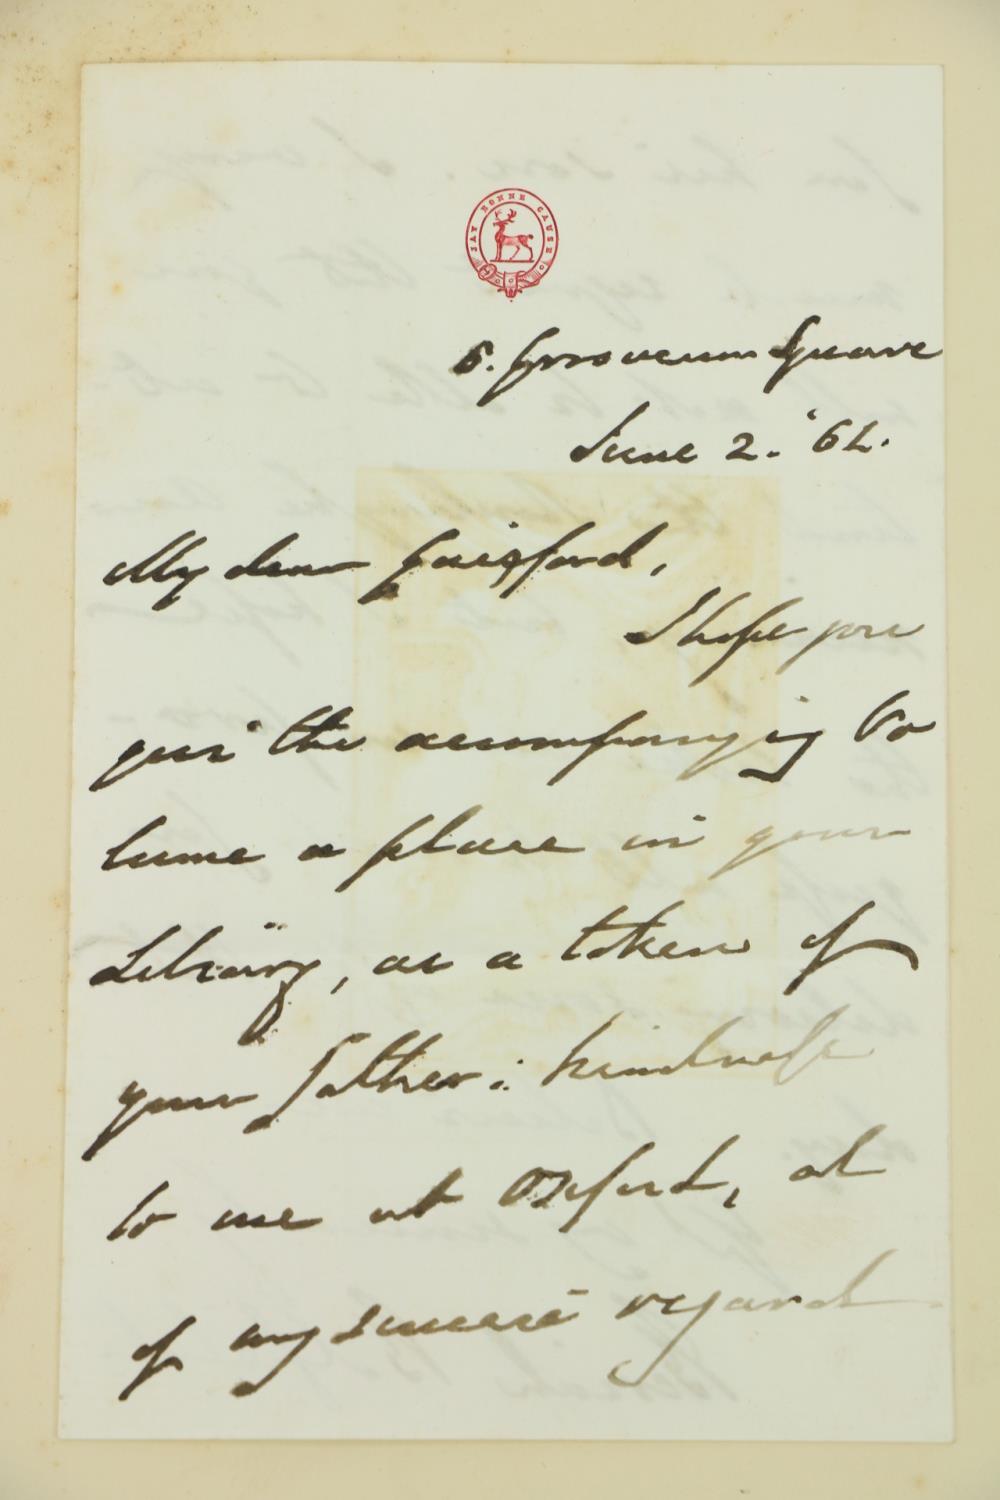 JAY BONNE CAUSE
6. Grosvenor Square
June 2. '62.
My dear Gaisford,
I hope you
give the accompanying Vo
lume a place in your
Library, as a token of
your Father's kindness
to me at Oxford, and
of my sincere regard